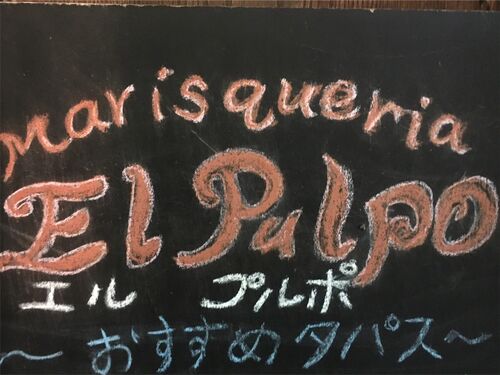 marisqueria
El Pulpo
エル プルポ
～おすすめタパス～